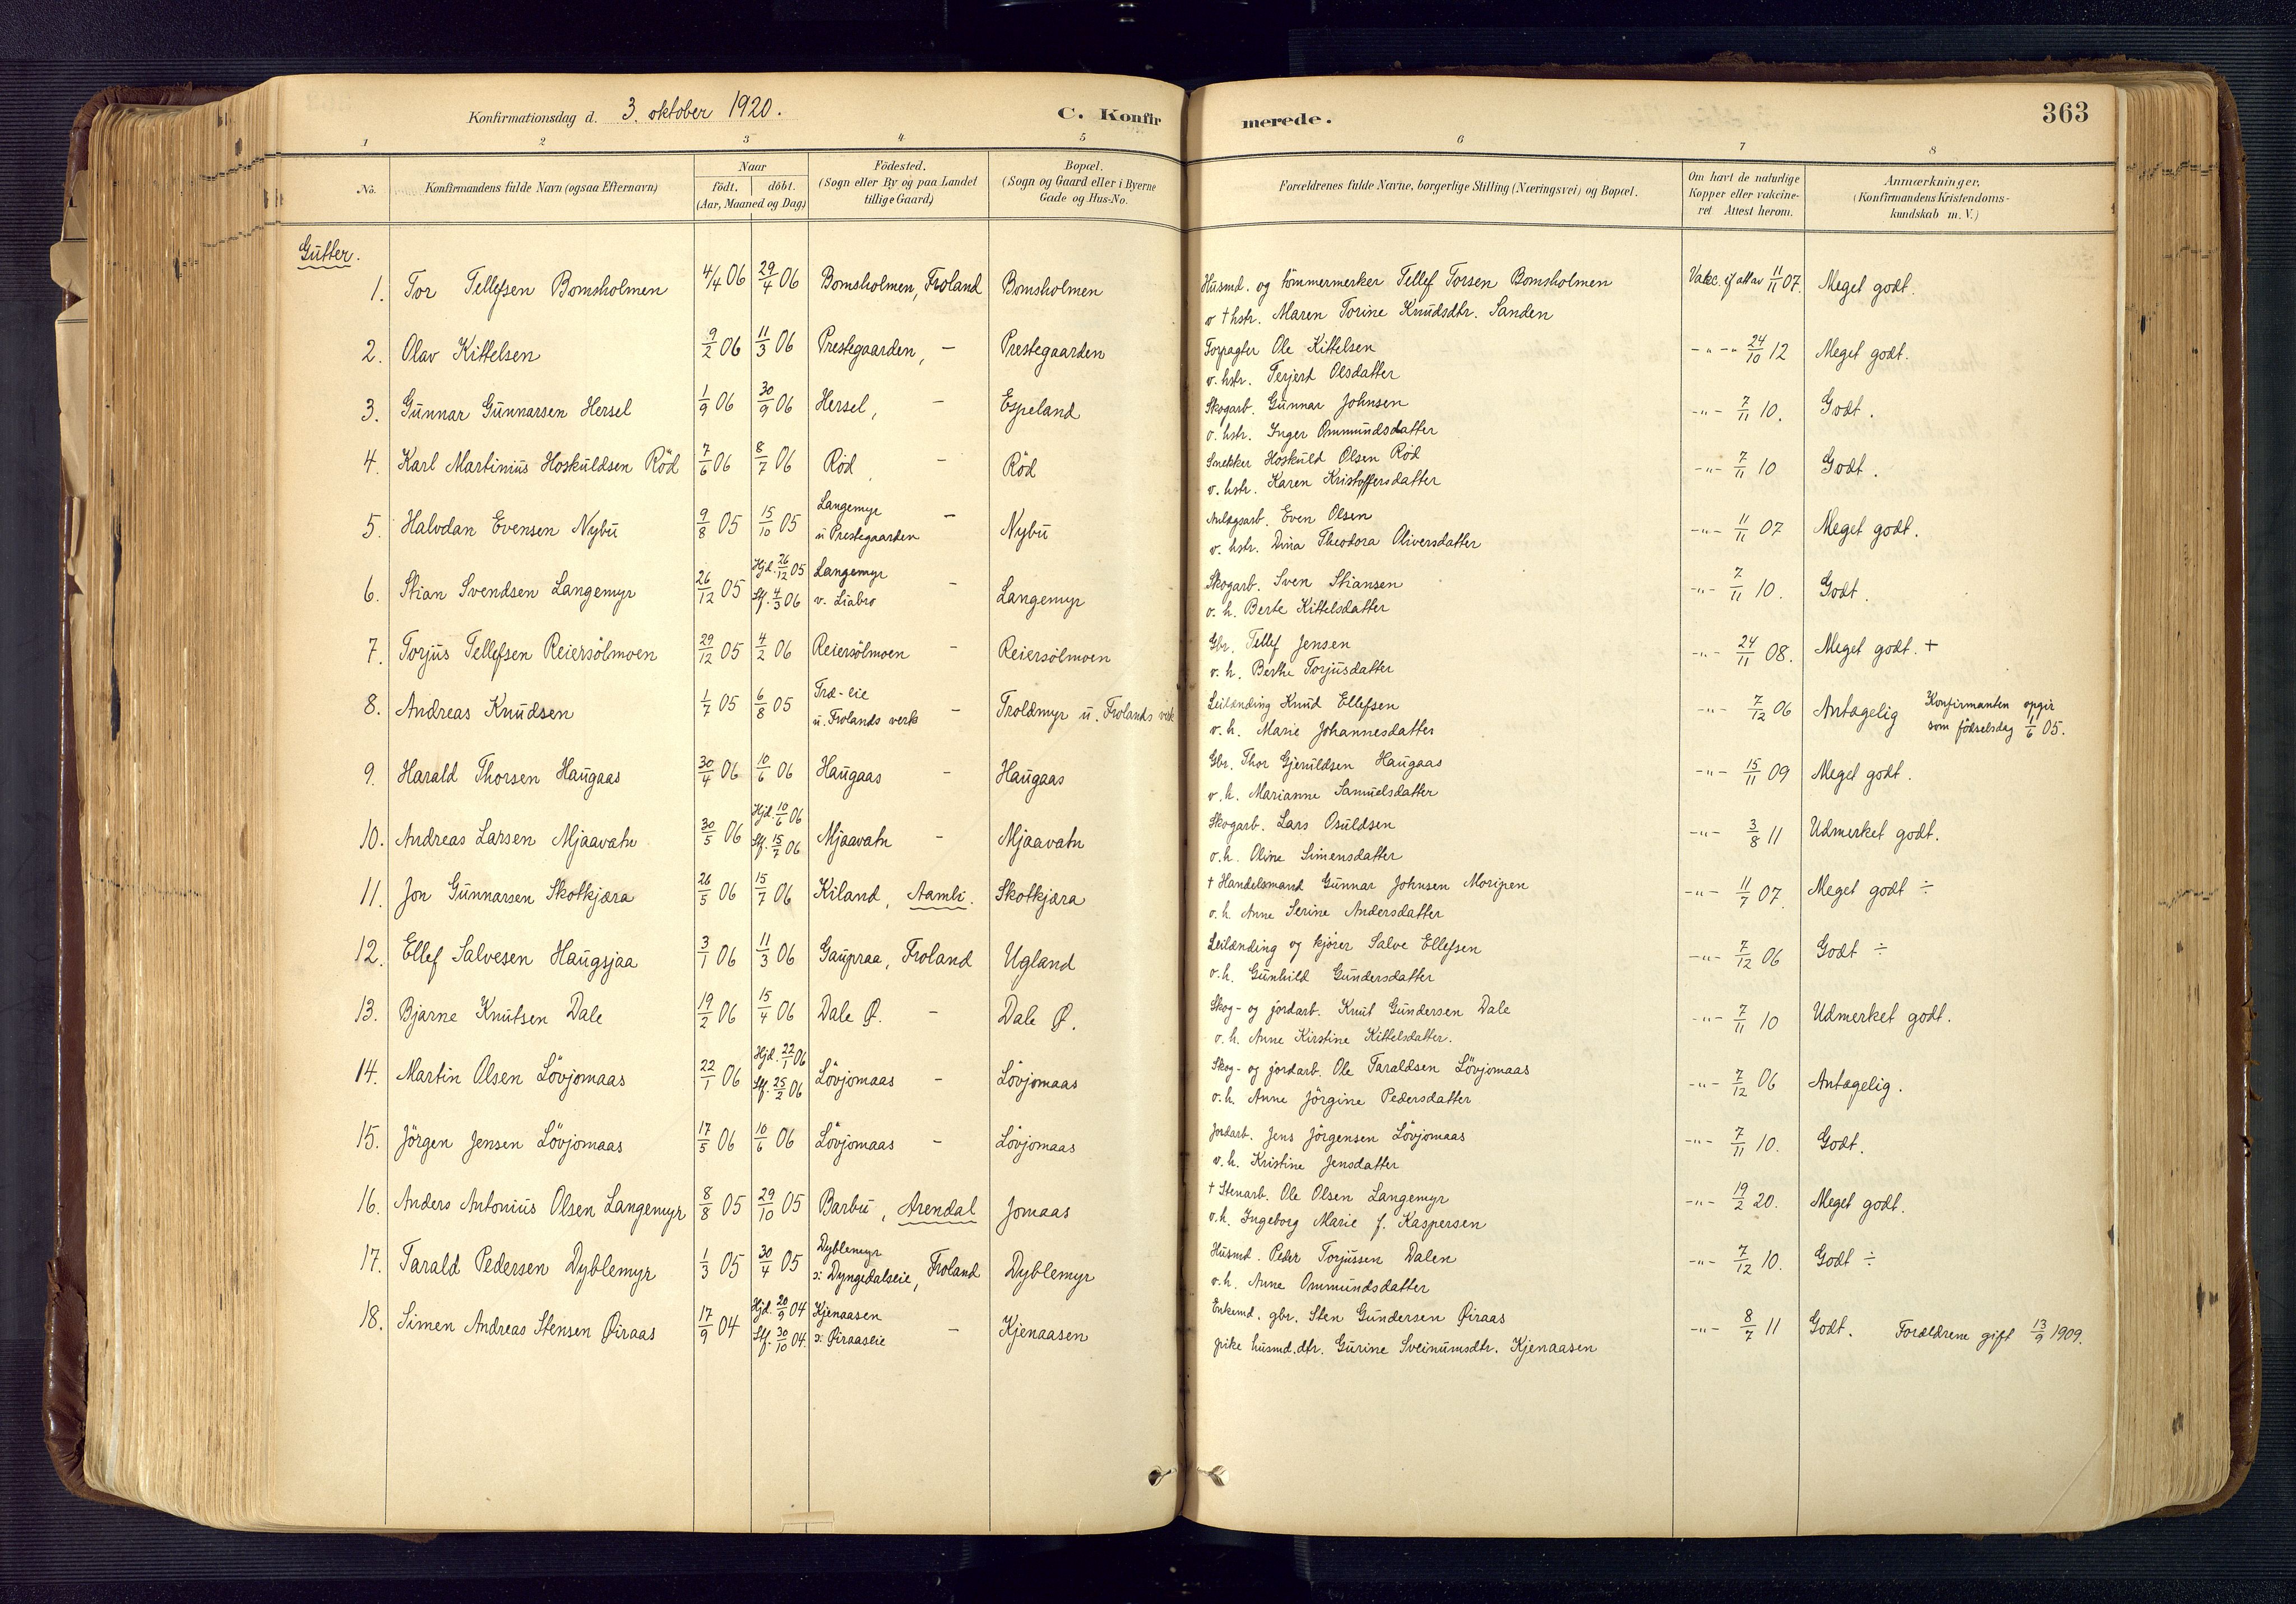 Konfirmationsdag d. 3. oktober 1920. C. Konfirmerede. 363
1 2 3 4 5 6 7 8
No. Konfirmandens fulde Navn (ogsaa Efternavn) Naar födt. döbt. (Aar, Maaned og Dag) Födested. (Sogn eller By og paa Landet tillige Gaard) Bopæl. (Sogn og Gaard eller i Byerne Gade og Hus-No. Forældrenes fulde Navne, borgerlige Stilling (Næringsvei) og Bopæl. Om havt de naturlige Kopper eller vakcineret Attest herom. Anmærkninger. (Konfirmandens Kristendomskundskab m. V.)
Gutter.
1. Tor Tellefsen Bomsholmen 4/4 06 29/4 06 Bomsholmen, Froland Bomsholmen Husmd. og tömmermerker Tellef Torsen Bomsholmen Vakc. if att av 11/11 07. Meget godt.
v † hstr. Maren Torine Knudsdtr. Sanden
2. Olav Kittelsen 9/2 06 11/3 06 Prestegaarden, - Prestegaarden Forpagter Ole Kittelsen -"- 24/10 12 Meget godt.
v. hstr. Terjerd Olsdatter
3. Gunnar Gunnarsen Hersel 1/9 06 30/9 06 Hersel, - Espeland Skogarb. Gunnar Johnsen -"- 7/11 10. Godt.
v. hstr. Inger Ommundsdatter
4. Karl Martinius Hoskuldsen Röd 7/6 06 8/7 06 Röd - Röd Snekker Hoskuld Olsen Röd -"- 7/11 10 Godt.
v. hstr. Karen Kristoffersdatter
5. Halvdan Evensen Nybu 9/8 05 15/10 05 Langemyr u Prestegaarden - Nybu Anlægsarb. Even Olsen -"- 11/11 07 Meget godt.
v. hstr. Dina Theodora Oliversdatter
6. Stian Svendsen Langemyr 26/12 05 Hjd. 26/12 05 Stf. 4/3 06 Langemyr v. Liabro - Langemyr Skogarb. Sven Stiansen -"- 7/11 10. Godt.
v. h. Berte Kittelsdatter
7. Torjus Tellefsen Reiersölmoen 29/12 05 4/2 06 Reiersölmoen - Reiersölmoen Gbr. Tellef Jensen -"- 24/11 08. Meget godt. +
v. h. Berthe Torjusdatter
8. Andreas Knudsen 1/7 05 6/8 05 Træ-eie u. Frolands verk - Troldmyr u. Frolands verk Leilænding Knud Ellefsen -"- 7/12 06 Antagelig Konfirmanten opgir som födselsdag 1/6 05.
v. h. Marie Johannesdatter
9. Harald Thorsen Haugaas 30/4 06 10/6 06 Haugaas - Haugaas Gbr. Thor Gjeruldsen Haugaas -"- 15/11 09 Meget godt.
v. h. Marianne Samuelsdatter
10. Andreas Larsen Mjaavatn 30/5 06 Hjd. 10/6 06 Stf. 15/7 06 Mjaavatn - Mjaavatn Skogarb. Lars Osuldsen -"- 3/8 11 Udmerket godt.
v. h. Oline Simensdatter
11. Jon Gunnarsen Skotkjæra 26/5 06 15/7 06 Kiland, Aamli. Skotkjæra † Handelsmand Gunnar Johnsen Moripen -"- 11/7 07. Meget godt ÷
v. h. Anne Serine Andersdatter
12. Ellef Salvesen Haugsjaa 3/1 06 11/3 06 Gaupraa, Froland Ugland Leilænding og kjörer Salve Ellefsen -"- 7/12 06 Godt ÷
v. h. Gunhild Gundersdatter
13. Bjarne Knutsen Dale 19/2 06 15/4 06 Dale Ø. - Dale Ø. Skog- og jordarb. Knut Gundersen Dale -"- 7/11 10 Udmerket godt.
v. h. Anne Kirstine Kittelsdatter.
14. Martin Olsen Lövjomaas 22/1 06 Hjd. 22/1 06 Stf. 25/2 06 Lövjomaas - Lövjomaas Skog- og jordarb. Ole Taraldsen Lövjomaas -"- 7/12 06 Antagelig.
v. h. Anne Jörgine Pedersdatter
15. Jörgen Jensen Lövjomaas 17/5 06 10/6 06 Lövjomaas - Lövjomaas Jordarb. Jens Jörgensen Lövjomaas -"- 7/11 10. Godt.
v. h. Kristine Jensdatter
16. Anders Antonius Olsen Langemyr 8/8 05 29/10 05 Barbu, Arendal Jomaas † Stenarb. Ole Olsen Langemyr -"- 19/2 20. Meget godt.
v. h. Ingeborg Marie f. Kaspersen
17. Tarald Pedersen Dyblemyr 1/3 05 30/4 05 Dyblemyr ɔ: Dyngedalseie, Froland Dyblemyr Husmd. Peder Torjussen Dalen -"- 7/12 10. Godt ÷
v. h. Anne Ommundsdatter
18. Simen Andreas Stensen Øiraas 17/9 04 Hjd. 20/9 04 Stf. 30/10 04. Kjenaasen ɔ: Øiraaseie - Kjenaasen Enkemd. gbr. Sten Gundersen Øiraas -"- 8/7 11 Godt. Forældrene gift 13/9 1909.
pike husmd.dtr. Gurine Sveinumsdtr. Kjenaasen